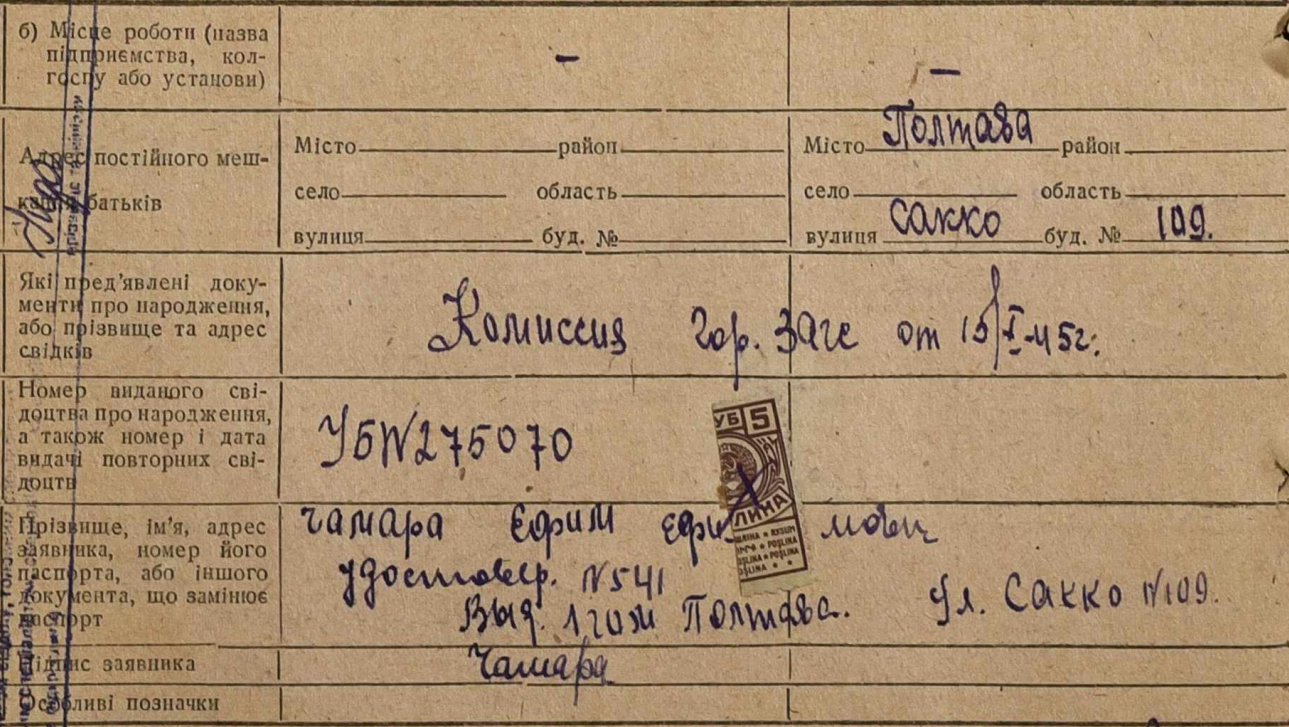 б) Місце роботи (назва
підприємства, кол-
госпу або установи)
– –
Адрес постійного меш-
кання батьків
Місто район
село область
вулиця буд. №
Місто Полтава район
село область
вулиця Сакко буд. № 109.
Які пред'явлені доку-
менти про народження,
або прізвище та адрес
свідків
Комиссия Гор. Загс от 15/I-45г.
Номер виданого сві-
доцтва про народження,
а також номер і дата
видачі повторних сві-
доцтв
УБ№275070
УБ 5
ЛИНА
POŞLINA
Прізвище, ім'я, адрес
заявника, номер його
паспорта, або іншого
документа, що замінює
паспорт
Чамара Ефим
удостовер. №541
Выд. Полтава. Ул. Сакко №109.
Підпис заявника
Чамара
Особливі позначки